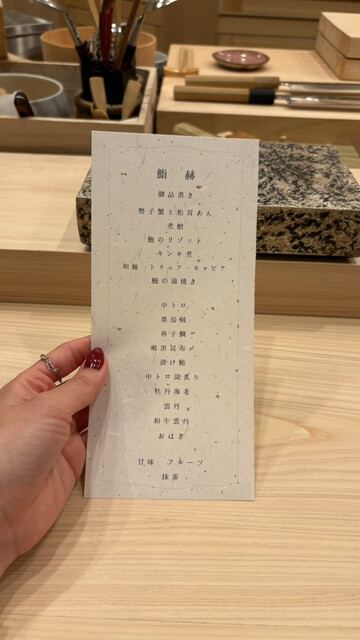 鮨 赫
御品書き
勢子蟹と松茸あん
煮鮑
鮑のリゾット
キンキ煮
和麺 トリュフ・キャビア
鰻の蒲焼き
中トロ
墨烏賊
春子鯛
喉黒昆布〆
漬け鮪
中トロ炭炙り
牡丹海老
雲丹
和牛雲丹
おはぎ
甘味 フルーツ
抹茶